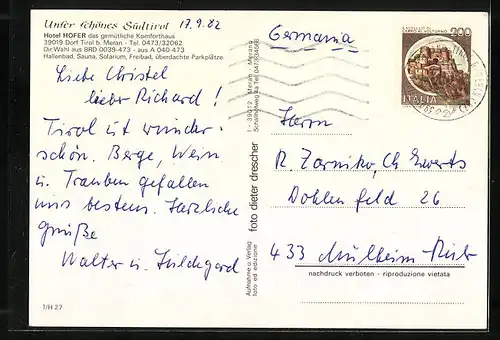 Unser schönes Südtirol 17.9.82
Hotel HOFER das gemütliche Komforthaus
39019 Dorf Tirol b. Meran - Tel. 0473/32062
Dir.Wahl aus BRD 0039-473 - aus A 040-473
Hallenbad, Sauna, Solarium, Freibad, überdachte Parkplätze.
Liebe Christel
lieber Richard !
Tirol ist wunder-
schön. Berge, Wein
u. Trauben gefallen
uns bestens. Herzliche
Grüße
Walter u. Hildegard
1/H 27
I - 39012 Meran - Merano
foto dieter drescher
Aufnahme u. Verlag
foto ed edizione
Germania
200
ITALIA
Herrn
R. Zarniko, Ch. Ewerts
Dohlenfeld 26
433 Mülheim-Ruhr
nachdruck verboten - riproduzione vietata